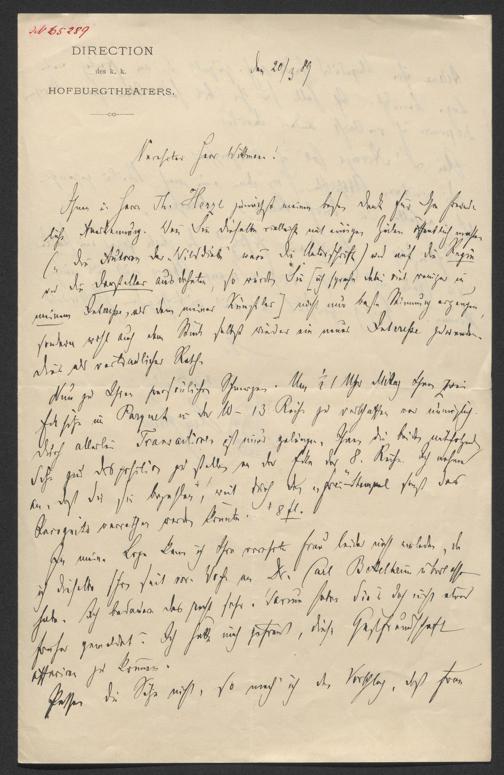 IN 65289
DIRECTION
des k. k.
HOFBURGTHEATERS.
den 20/3 89
Verehrter Herr Wittmann!
Ihnen u Herrn Th. Herzl zunächst meinen besten Dank für Ihre freund-
liche Anerkennung. Wenn Sie dieselbe vielleicht mit einigen Zeilen öffentlich machen
(„Die Autoren des Wilddieb" wäre die Unterschrift) und auf die Regie
wie die Darsteller ausdehnten, so würden Sie [ich spreche dabei viel weniger in
meinem Interesse, als dem meiner Künstler] nicht nur beste Stimmung erzeugen,
sondern wohl auch dem Stück selbst wieder ein neues Interesse zuwenden.
Dies als vertraulicher Rath.
Nun zu Ihren persönlichen Um 1 Uhr Mittag Ihnen zwei
Ecksitze im Parquet in der 10 – 13 Reihe zu verschaffen war unmöglich.
Durch allerlei Transactionen ist mir gelungen, Ihnen die beiden
Sitze zur Disposition zu stellen an der Ecke der 8. Reihe. Ich nehme
an, daß Sie sie weil durch den Stempel sonst das
Incognito verrathen werden könnte. 8 fl.
In meine Loge kann ich Ihre verehrte Frau leider nicht einladen, da
ich dieselbe schon seit vor. Woche an Dr. Carl überlassen
habe. Ich bedauere das recht sehr. Warum haben Sie's doch nicht eher
früher gemeldet? Ich hätte mich gefreut, diese Gastfreundschaft
offeriren zu können.
Passen die Sitze nicht, so mach' ich den Vorschlag, daß Frau